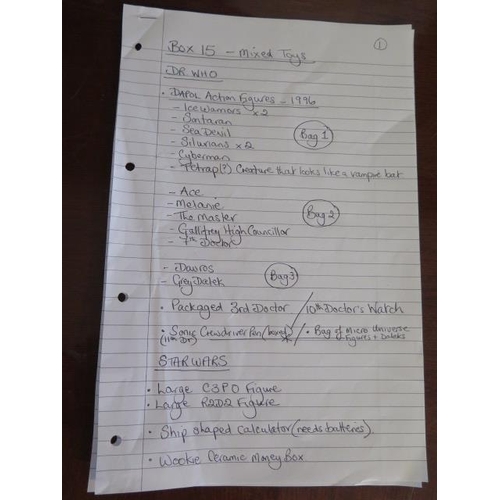 ①
Box 15 - Mixed Toys
DR WHO
• DAPOL Action Figures - 1996
- Ice Warriors x 2
- Sontaran
- Sea Devil
- Silurians x 2
Bag 1
- Cyberman
- Tetrap(?) Creature that looks like a vampire bat
- Ace
- Melanie
- The Master
Bag 2
- Gallifrey High Councillor
- 7th Doctor
- Davros
- Grey Dalek
Bag 3
• Packaged 3rd Doctor / 10th Doctor's Watch
• Sonic Crewdriver Pen (boxed) / • Bag of Micro Universe
(11th Dr) Figures + Daleks
STAR WARS
• Large C3PO Figure
• Large R2D2 Figure
• Ship shaped calculator (needs batteries).
• Wookie Ceramic Money Box